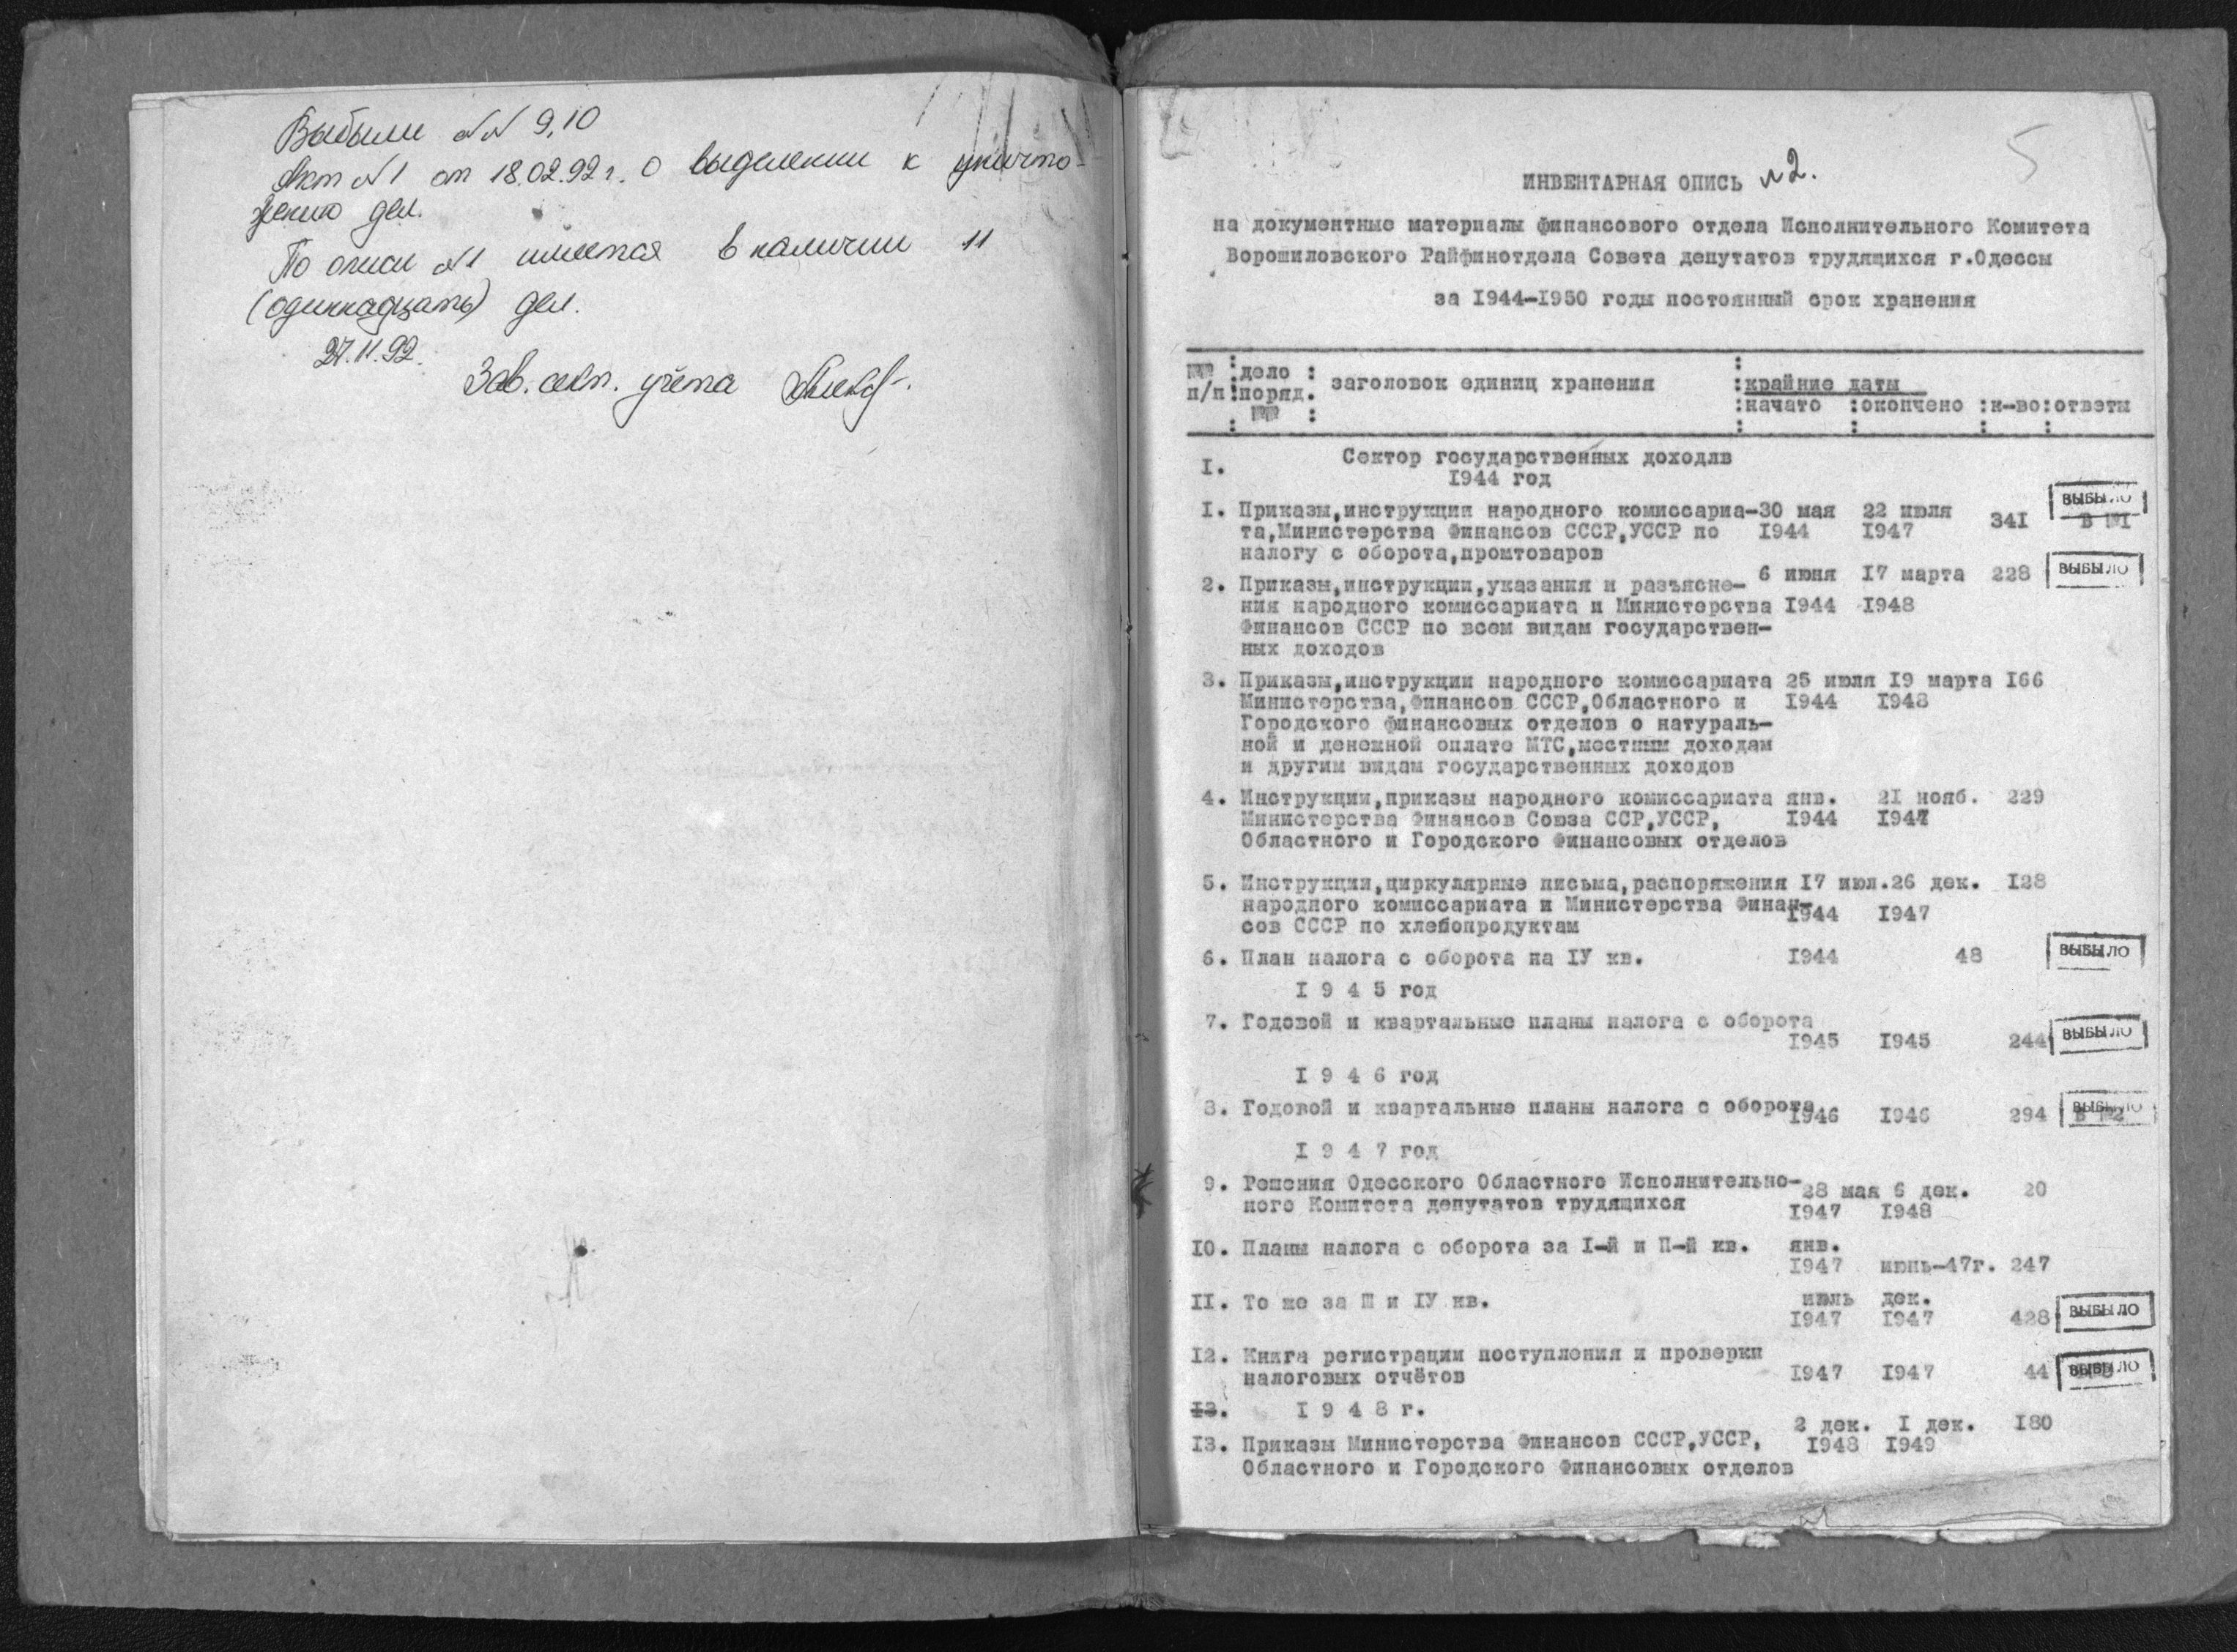 Выбыли №№ 9,10
Акт №1 от 18.02.92 г. о выделении к уничто-
жению дел.
По описи №1 имеется в наличии 11
(одиннадцать) дел.
27.11.92.
Зав. сект. учёта
5
ИНВЕНТАРНАЯ ОПИСЬ №2.
на документные материалы финансового отдела Исполнительного Комитета
Ворошиловского Райфинотдела Совета депутатов трудящихся г.Одессы
за 1944-1950 годы постоянный срок хранения
№№ п/п : дело поряд. №№ : заголовок единиц хранения : крайние даты
:начато :окончено :к-во:ответы
I. Сектор государственных доходлв
1944 год
I. Приказы,инструкции народного комиссариа- 30 мая 22 июля ВЫБЫЛО
та,Министерства Финансов СССР,УССР по 1944 1947 341 В №1
налогу с оборота,промтоваров
2. Приказы,инструкции,указания и разъясне- 6 июня 17 марта 228 ВЫБЫЛО
ния народного комиссариата и Министерства 1944 1948
Финансов СССР по всем видам государствен-
ных доходов
3. Приказы,инструкции народного комиссариата 25 июля 19 марта 166
Министерства,Финансов СССР,Областного и 1944 1948
Городского финансовых отделов о натураль-
ной и денежной оплате МТС,местным доходам
и другим видам государственных доходов
4. Инструкции,приказы народного комиссариата янв. 21 нояб. 229
Министерства Финансов Союза ССР,УССР, 1944 1947
Областного и Городского Финансовых отделов
5. Инструкции,циркулярные письма,распоряжения 17 июл. 26 дек. 128
народного комиссариата и Министерства Финан- 1944 1947
сов СССР по хлебопродуктам
6. План налога с оборота на IУ кв. 1944 48 ВЫБЫЛО
1 9 4 5 год
7. Годовой и квартальные планы налога с оборота
1945 1945 244 ВЫБЫЛО
1 9 4 6 год
8. Годовой и квартальные планы налога с оборота 1946 1946 294 В №2 ВЫБЫЛО
1 9 4 7 год
9. Решения Одесского Областного Исполнительно- 28 мая 6 дек. 20
ного Комитета депутатов трудящихся 1947 1948
10. Планы налога с оборота за I-й и П-й кв. янв.
1947 июнь-47г. 247
11. То же за Ш и IУ кв. июль дек.
1947 1947 428 ВЫБЫЛО
12. Книга регистрации поступления и проверки
налоговых отчётов 1947 1947 44 ВЫБЫЛО
13. 1 9 4 8 г.
2 дек. 1 дек. 180
13. Приказы Министерства Финансов СССР,УССР, 1948 1949
Областного и Городского Финансовых отделов